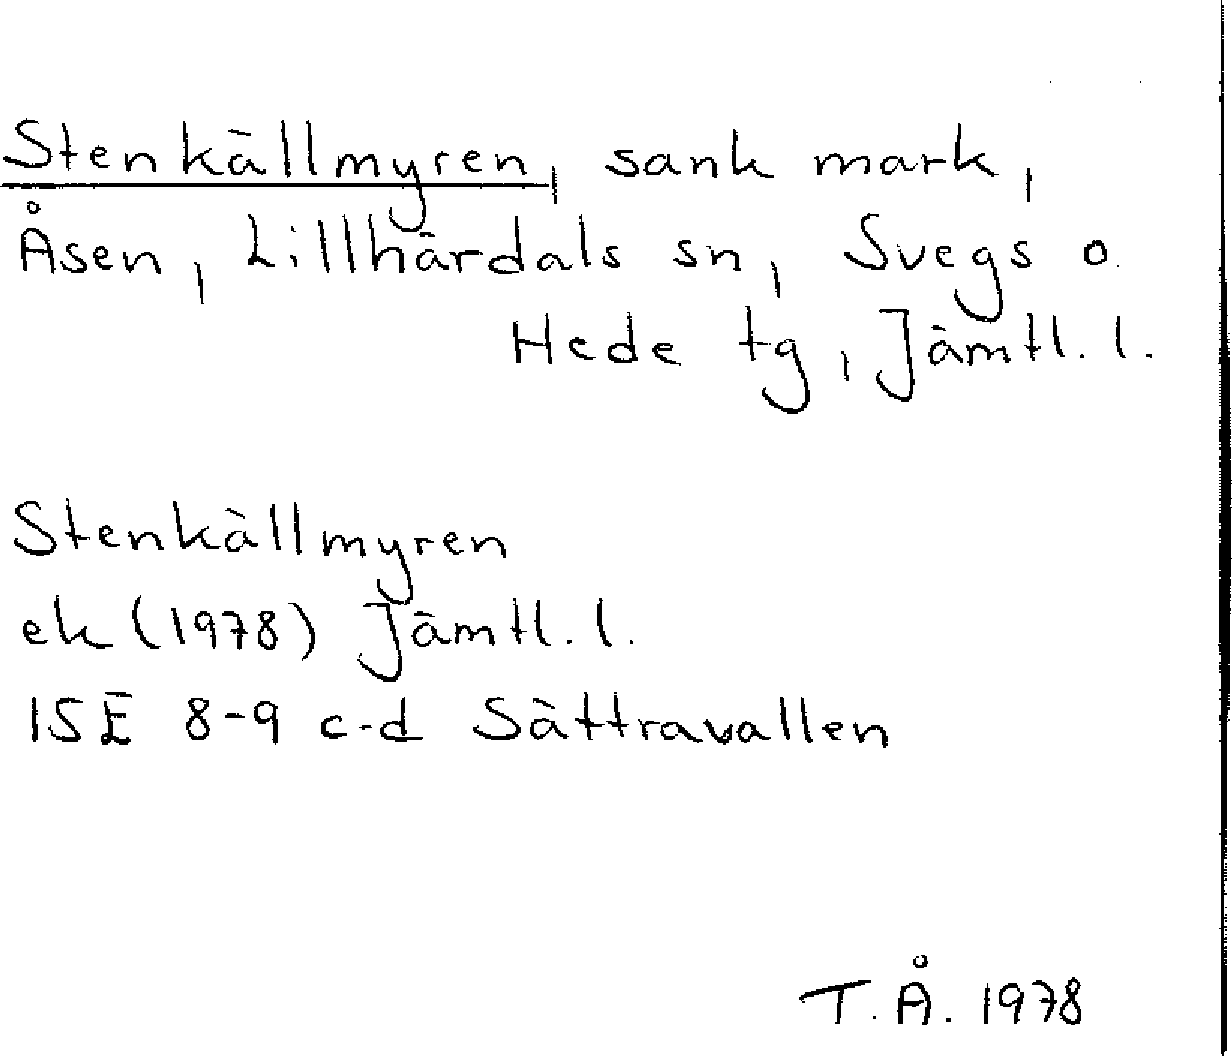 Stenkällmyren, sank mark,
Åsen, Lillhärdals sn, Svegs o.
Hede tg, Jämtl. l.
Stenkällmyren
ek (1978) Jämtl. l.
15E 8-9 c-d Sättravallen
T. Å. 1978